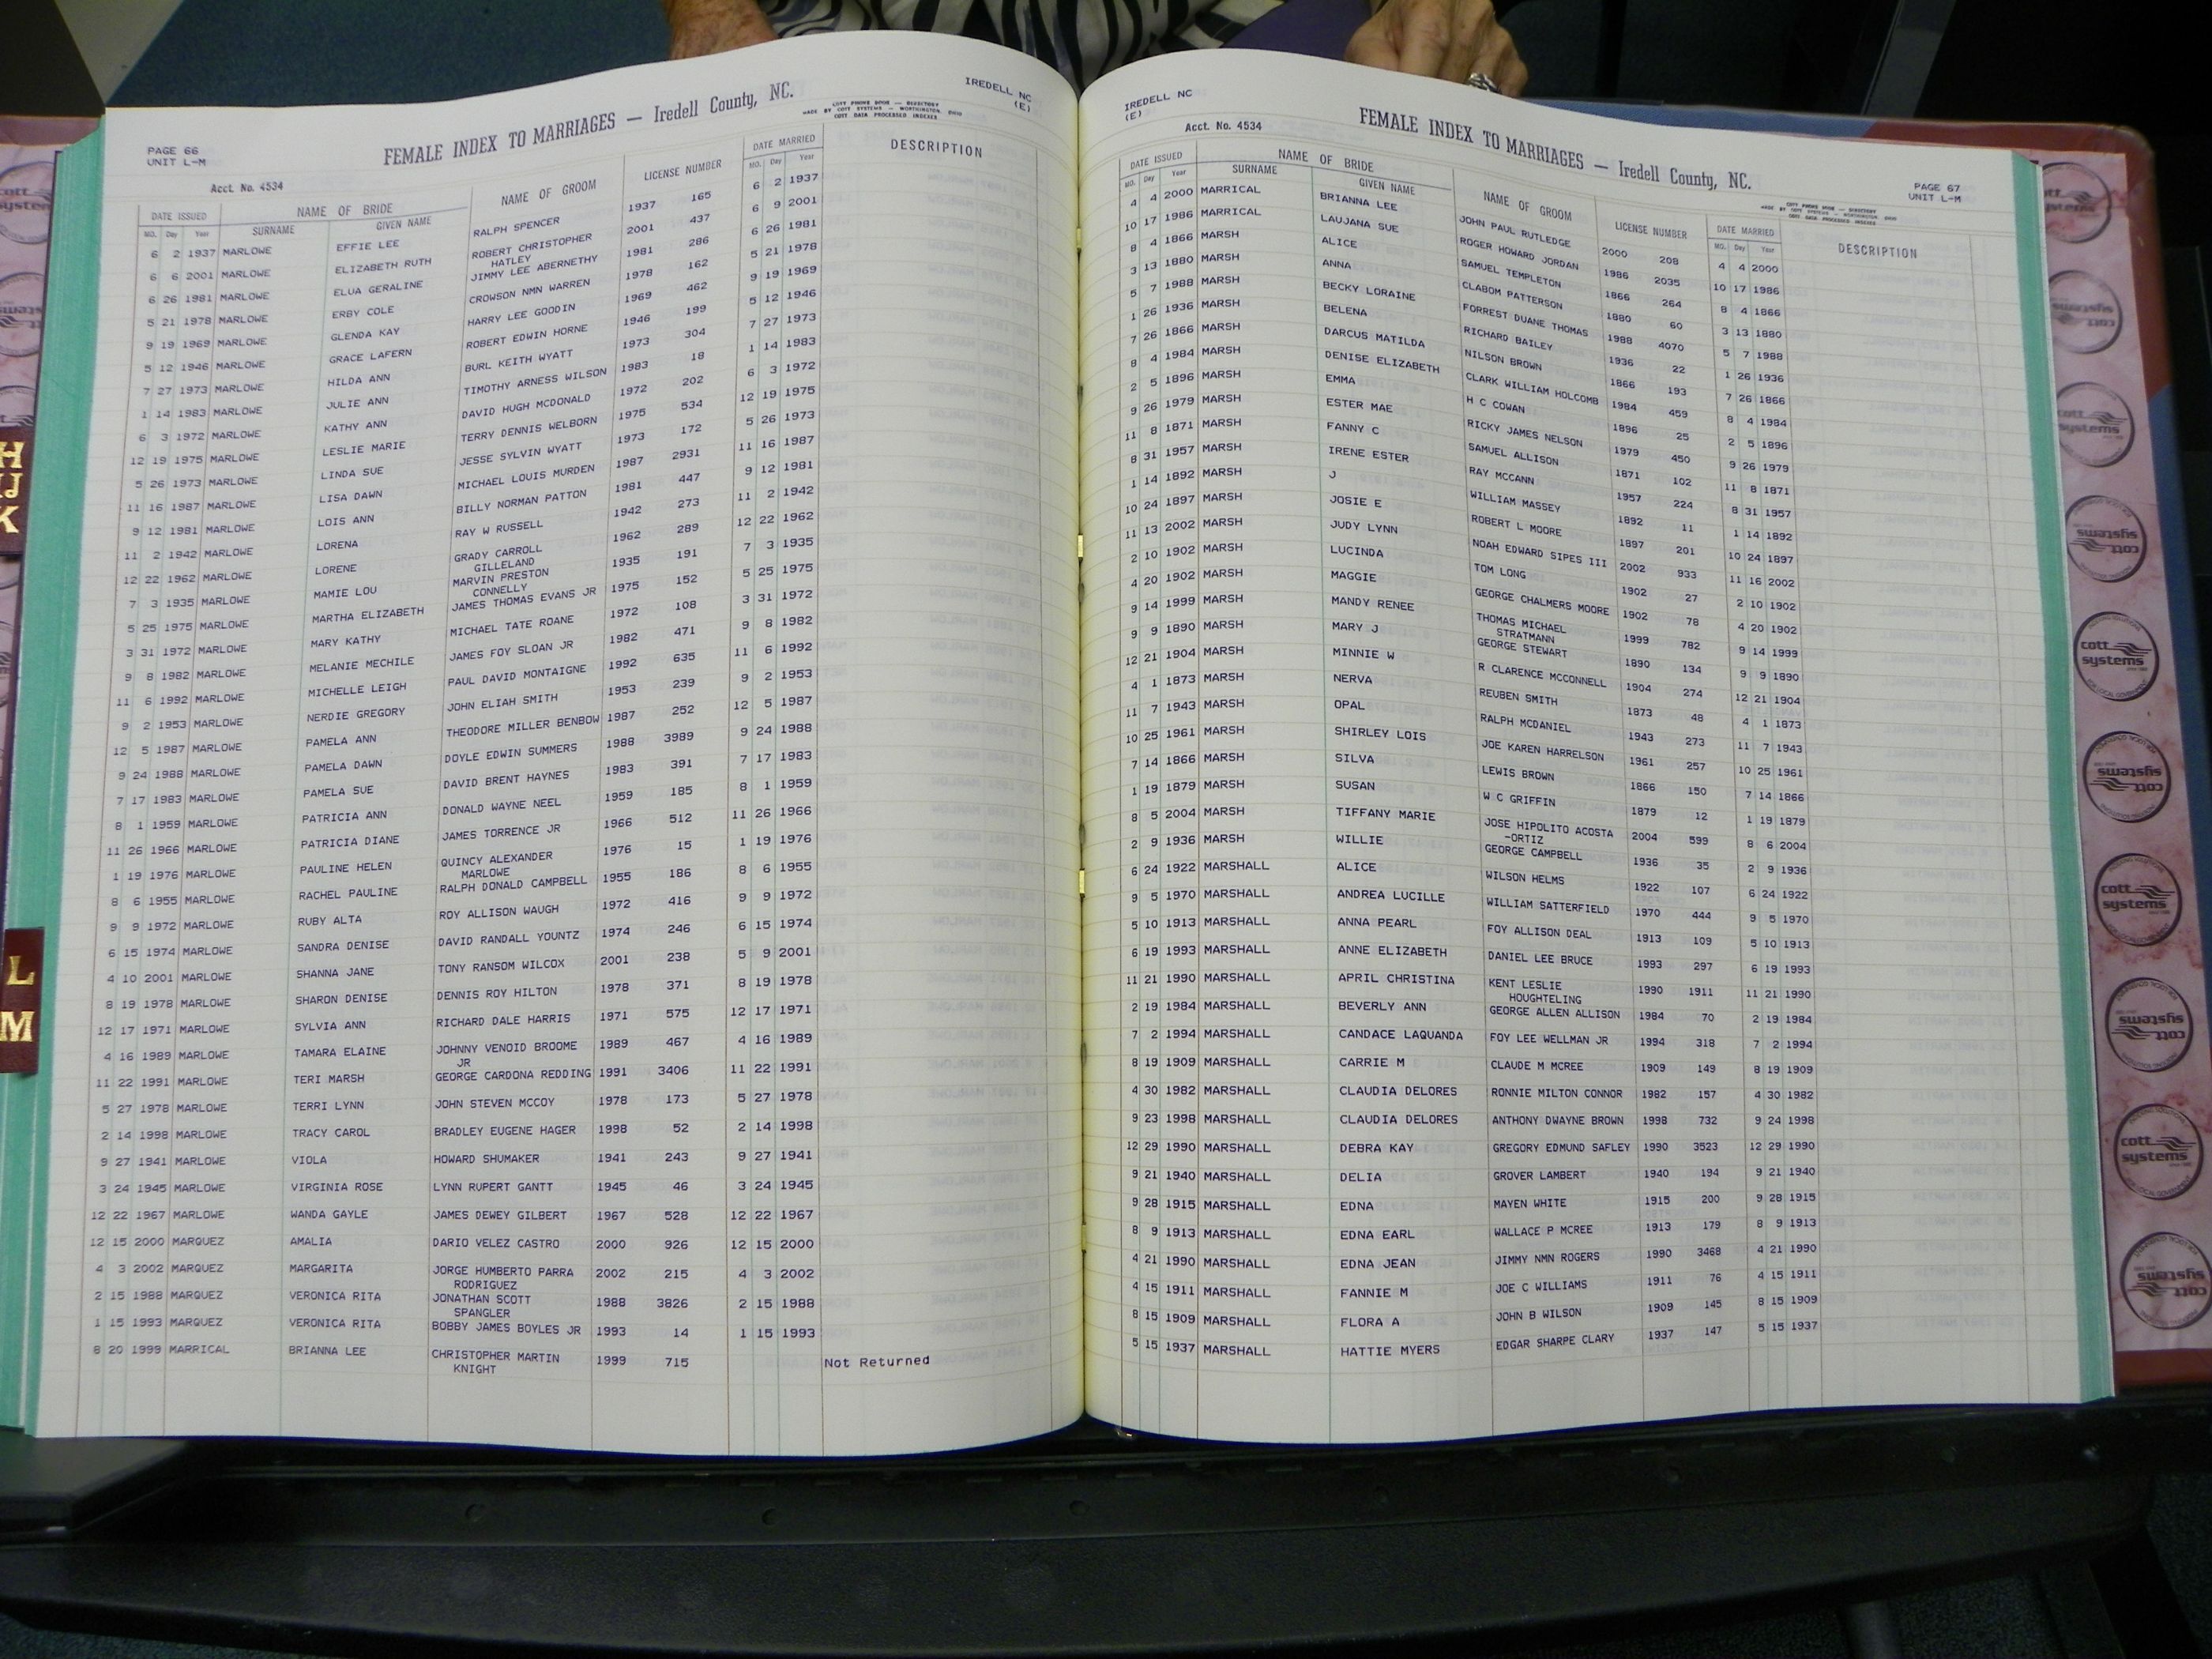 IREDELL NC
(E)
COTT PHONE BOOK — DIRECTORY
MADE BY COTT SYSTEMS — WORTHINGTON OHIO
COTT DATA PROCESSED INDEXES
FEMALE INDEX TO MARRIAGES — Iredell County, NC.
PAGE 66
UNIT L-M
Acct. No. 4534
DATE ISSUED NAME OF BRIDE NAME OF GROOM LICENSE NUMBER DATE MARRIED DESCRIPTION
MO. Day Year SURNAME GIVEN NAME MO. Day Year
6 2 1937 MARLOWE EFFIE LEE RALPH SPENCER 1937 165 6 2 1937
6 6 2001 MARLOWE ELIZABETH RUTH ROBERT CHRISTOPHER 2001 437 6 9 2001
HATLEY
6 26 1981 MARLOWE ELUA GERALINE JIMMY LEE ABERNETHY 1981 286 6 26 1981
5 21 1978 MARLOWE ERBY COLE CROWSON NMN WARREN 1978 162 5 21 1978
9 19 1969 MARLOWE GLENDA KAY HARRY LEE GOODIN 1969 462 9 19 1969
5 12 1946 MARLOWE GRACE LAFERN ROBERT EDWIN HORNE 1946 199 5 12 1946
7 27 1973 MARLOWE HILDA ANN BURL KEITH WYATT 1973 304 7 27 1973
1 14 1983 MARLOWE JULIE ANN TIMOTHY ARNESS WILSON 1983 18 1 14 1983
6 3 1972 MARLOWE KATHY ANN DAVID HUGH MCDONALD 1972 202 6 3 1972
12 19 1975 MARLOWE LESLIE MARIE TERRY DENNIS WELBORN 1975 534 12 19 1975
5 26 1973 MARLOWE LINDA SUE JESSE SYLVIN WYATT 1973 172 5 26 1973
11 16 1987 MARLOWE LISA DAWN MICHAEL LOUIS MURDEN 1987 2931 11 16 1987
9 12 1981 MARLOWE LOIS ANN BILLY NORMAN PATTON 1981 447 9 12 1981
11 2 1942 MARLOWE LORENA RAY W RUSSELL 1942 273 11 2 1942
12 22 1962 MARLOWE LORENE GRADY CARROLL 1962 289 12 22 1962
GILLELAND
7 3 1935 MARLOWE MAMIE LOU MARVIN PRESTON 1935 191 7 3 1935
CONNELLY
5 25 1975 MARLOWE MARTHA ELIZABETH JAMES THOMAS EVANS JR 1975 152 5 25 1975
3 31 1972 MARLOWE MARY KATHY MICHAEL TATE ROANE 1972 108 3 31 1972
9 8 1982 MARLOWE MELANIE MECHILE JAMES FOY SLOAN JR 1982 471 9 8 1982
11 6 1992 MARLOWE MICHELLE LEIGH PAUL DAVID MONTAIGNE 1992 635 11 6 1992
9 2 1953 MARLOWE NERDIE GREGORY JOHN ELIAH SMITH 1953 239 9 2 1953
12 5 1987 MARLOWE PAMELA ANN THEODORE MILLER BENBOW 1987 252 12 5 1987
9 24 1988 MARLOWE PAMELA DAWN DOYLE EDWIN SUMMERS 1988 3989 9 24 1988
7 17 1983 MARLOWE PAMELA SUE DAVID BRENT HAYNES 1983 391 7 17 1983
8 1 1959 MARLOWE PATRICIA ANN DONALD WAYNE NEEL 1959 185 8 1 1959
11 26 1966 MARLOWE PATRICIA DIANE JAMES TORRENCE JR 1966 512 11 26 1966
1 19 1976 MARLOWE PAULINE HELEN QUINCY ALEXANDER 1976 15 1 19 1976
MARLOWE
8 6 1955 MARLOWE RACHEL PAULINE RALPH DONALD CAMPBELL 1955 186 8 6 1955
9 9 1972 MARLOWE RUBY ALTA ROY ALLISON WAUGH 1972 416 9 9 1972
6 15 1974 MARLOWE SANDRA DENISE DAVID RANDALL YOUNTZ 1974 246 6 15 1974
4 10 2001 MARLOWE SHANNA JANE TONY RANSOM WILCOX 2001 238 5 9 2001
8 19 1978 MARLOWE SHARON DENISE DENNIS ROY HILTON 1978 371 8 19 1978
12 17 1971 MARLOWE SYLVIA ANN RICHARD DALE HARRIS 1971 575 12 17 1971
4 16 1989 MARLOWE TAMARA ELAINE JOHNNY VENOID BROOME 1989 467 4 16 1989
JR
11 22 1991 MARLOWE TERI MARSH GEORGE CARDONA REDDING 1991 3406 11 22 1991
5 27 1978 MARLOWE TERRI LYNN JOHN STEVEN MCCOY 1978 173 5 27 1978
2 14 1998 MARLOWE TRACY CAROL BRADLEY EUGENE HAGER 1998 52 2 14 1998
9 27 1941 MARLOWE VIOLA HOWARD SHUMAKER 1941 243 9 27 1941
3 24 1945 MARLOWE VIRGINIA ROSE LYNN RUPERT GANTT 1945 46 3 24 1945
12 22 1967 MARLOWE WANDA GAYLE JAMES DEWEY GILBERT 1967 528 12 22 1967
12 15 2000 MARQUEZ AMALIA DARIO VELEZ CASTRO 2000 926 12 15 2000
4 3 2002 MARQUEZ MARGARITA JORGE HUMBERTO PARRA 2002 215 4 3 2002
RODRIGUEZ
2 15 1988 MARQUEZ VERONICA RITA JONATHAN SCOTT 1988 3826 2 15 1988
SPANGLER
1 15 1993 MARQUEZ VERONICA RITA BOBBY JAMES BOYLES JR 1993 14 1 15 1993
8 20 1999 MARRICAL BRIANNA LEE CHRISTOPHER MARTIN 1999 715 Not Returned
KNIGHT
IREDELL NC
(E)
Acct. No. 4534
FEMALE INDEX TO MARRIAGES — Iredell County, NC.
COTT PHONE BOOK — DIRECTORY
MADE BY COTT SYSTEMS — WORTHINGTON OHIO
COTT DATA PROCESSED INDEXES
PAGE 67
UNIT L-M
DATE ISSUED NAME OF BRIDE NAME OF GROOM LICENSE NUMBER DATE MARRIED DESCRIPTION
MO. Day Year SURNAME GIVEN NAME MO. Day Year
4 4 2000 MARRICAL BRIANNA LEE JOHN PAUL RUTLEDGE 2000 208 4 4 2000
10 17 1986 MARRICAL LAUJANA SUE ROGER HOWARD JORDAN 1986 2035 10 17 1986
8 4 1866 MARSH ALICE SAMUEL TEMPLETON 1866 264 8 4 1866
3 13 1880 MARSH ANNA CLABOM PATTERSON 1880 60 3 13 1880
5 7 1988 MARSH BECKY LORAINE FORREST DUANE THOMAS 1988 4070 5 7 1988
1 26 1936 MARSH BELENA RICHARD BAILEY 1936 22 1 26 1936
7 26 1866 MARSH DARCUS MATILDA NILSON BROWN 1866 193 7 26 1866
8 4 1984 MARSH DENISE ELIZABETH CLARK WILLIAM HOLCOMB 1984 459 8 4 1984
2 5 1896 MARSH EMMA H C COWAN 1896 25 2 5 1896
9 26 1979 MARSH ESTER MAE RICKY JAMES NELSON 1979 450 9 26 1979
11 8 1871 MARSH FANNY C SAMUEL ALLISON 1871 102 11 8 1871
8 31 1957 MARSH IRENE ESTER RAY MCCANN 1957 224 8 31 1957
1 14 1892 MARSH J WILLIAM MASSEY 1892 11 1 14 1892
10 24 1897 MARSH JOSIE E ROBERT L MOORE 1897 201 10 24 1897
11 13 2002 MARSH JUDY LYNN NOAH EDWARD SIPES III 2002 933 11 16 2002
2 10 1902 MARSH LUCINDA TOM LONG 1902 27 2 10 1902
4 20 1902 MARSH MAGGIE GEORGE CHALMERS MOORE 1902 78 4 20 1902
9 14 1999 MARSH MANDY RENEE THOMAS MICHAEL 1999 782 9 14 1999
STRATMANN
9 9 1890 MARSH MARY J GEORGE STEWART 1890 134 9 9 1890
12 21 1904 MARSH MINNIE W R CLARENCE MCCONNELL 1904 274 12 21 1904
4 1 1873 MARSH NERVA REUBEN SMITH 1873 48 4 1 1873
11 7 1943 MARSH OPAL RALPH MCDANIEL 1943 273 11 7 1943
10 25 1961 MARSH SHIRLEY LOIS JOE KAREN HARRELSON 1961 257 10 25 1961
7 14 1866 MARSH SILVA LEWIS BROWN 1866 150 7 14 1866
1 19 1879 MARSH SUSAN W C GRIFFIN 1879 12 1 19 1879
8 5 2004 MARSH TIFFANY MARIE JOSE HIPOLITO ACOSTA 2004 599 8 6 2004
-ORTIZ
2 9 1936 MARSH WILLIE GEORGE CAMPBELL 1936 35 2 9 1936
6 24 1922 MARSHALL ALICE WILSON HELMS 1922 107 6 24 1922
9 5 1970 MARSHALL ANDREA LUCILLE WILLIAM SATTERFIELD 1970 444 9 5 1970
5 10 1913 MARSHALL ANNA PEARL FOY ALLISON DEAL 1913 109 5 10 1913
6 19 1993 MARSHALL ANNE ELIZABETH DANIEL LEE BRUCE 1993 297 6 19 1993
11 21 1990 MARSHALL APRIL CHRISTINA KENT LESLIE 1990 1911 11 21 1990
HOUGHTELING
2 19 1984 MARSHALL BEVERLY ANN GEORGE ALLEN ALLISON 1984 70 2 19 1984
7 2 1994 MARSHALL CANDACE LAQUANDA FOY LEE WELLMAN JR 1994 318 7 2 1994
8 19 1909 MARSHALL CARRIE M CLAUDE M MCREE 1909 149 8 19 1909
4 30 1982 MARSHALL CLAUDIA DELORES RONNIE MILTON CONNOR 1982 157 4 30 1982
9 23 1998 MARSHALL CLAUDIA DELORES ANTHONY DWAYNE BROWN 1998 732 9 24 1998
12 29 1990 MARSHALL DEBRA KAY GREGORY EDMUND SAFLEY 1990 3523 12 29 1990
9 21 1940 MARSHALL DELIA GROVER LAMBERT 1940 194 9 21 1940
9 28 1915 MARSHALL EDNA MAYEN WHITE 1915 200 9 28 1915
8 9 1913 MARSHALL EDNA EARL WALLACE P MCREE 1913 179 8 9 1913
4 21 1990 MARSHALL EDNA JEAN JIMMY NMN ROGERS 1990 3468 4 21 1990
4 15 1911 MARSHALL FANNIE M JOE C WILLIAMS 1911 76 4 15 1911
8 15 1909 MARSHALL FLORA A JOHN B WILSON 1909 145 8 15 1909
5 15 1937 MARSHALL HATTIE MYERS EDGAR SHARPE CLARY 1937 147 5 15 1937
H
IJ
K
L
M
cott
systems
cott
systems
cott
systems
cott
systems